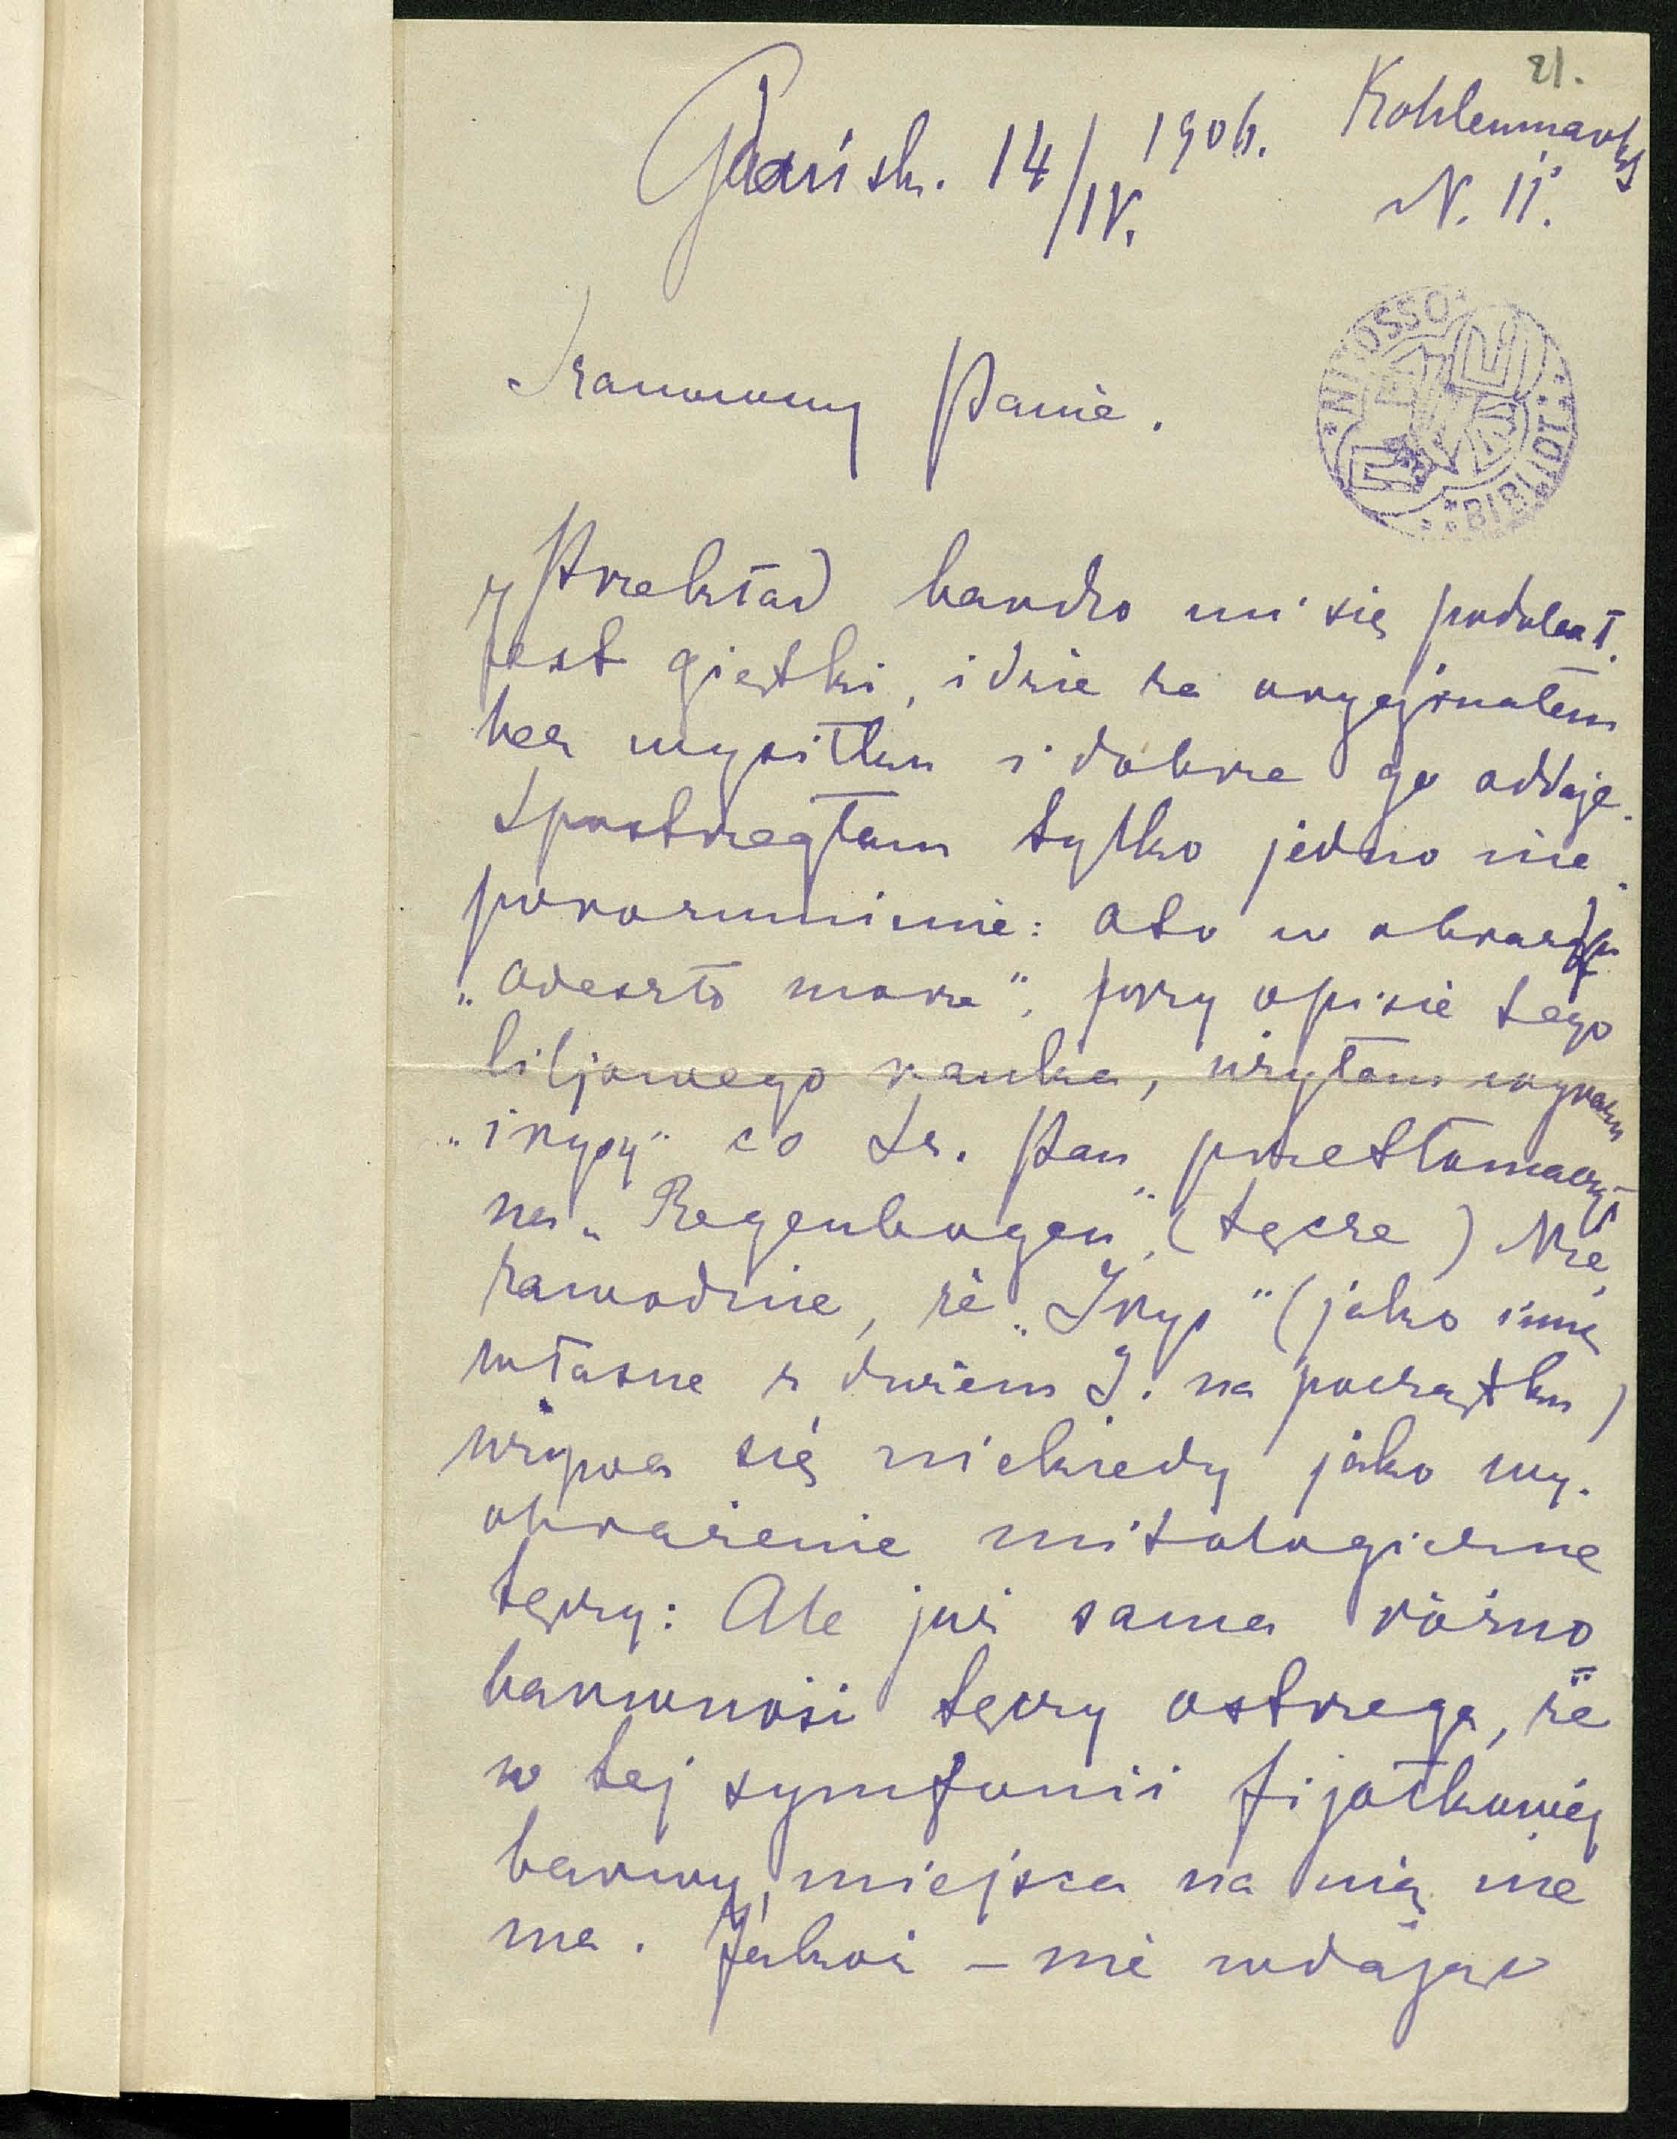 21.
Gdańsk. 14/IV. 1906. Kohlenmarkt
N. 11.
Szanowny Panie.
NI. OSSO
BIBLIOT.
Przekład bardzo mi się podobał.
Jest giętki, idzie za oryginałem
bez wysiłku i dobrze go oddaje.
Spostrzegłam tylko jedno nie
porozumienie: Oto w obrazku
„Odeszło morze", przy opisie tego
liljowego ranka, użyłam wyrazu
„irysy" co Sz. Pan przetłomaczył
na „Regenbogen", (tęcze) Nie
zawodnie, że „Irys" (jako imię
własne z dużem I. na początku)
używa się niekiedy jako wy.
obrażenie mitologiczne
tęczy: Ale już sama różno
barwność tęczy ostrzega, że
w tej symfonii fijołkowej
barwy, miejsca na nią nie
ma. Jakoż – nie wdając